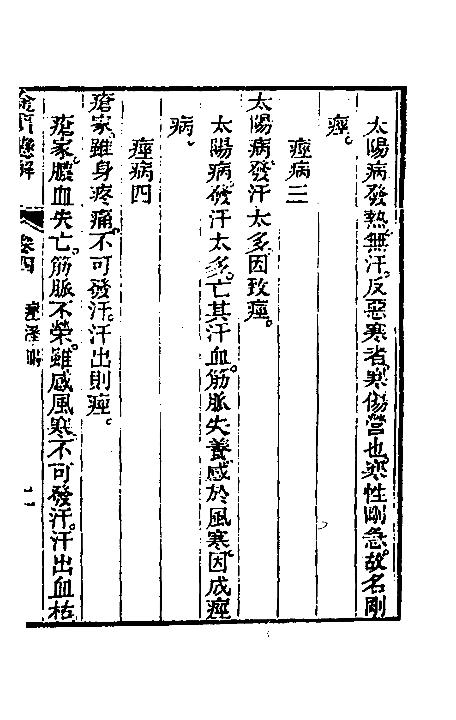 太陽病發熱無汗。反惡寒者。寒傷營也。寒性剛急。故名剛
痙。
痙病三
太陽病發汗太多。因致痙。
太陽病。發汗太多。亡其汗血。筋脈失養。感於風寒。因成痙
病。
痙病四
瘡家。雖身疼痛。不可發汗。汗出則痙。
瘡家。膿血失亡。筋脈不榮。雖感風寒。不可發汗。汗出血枯
金匱懸解 卷四 痙溼暍